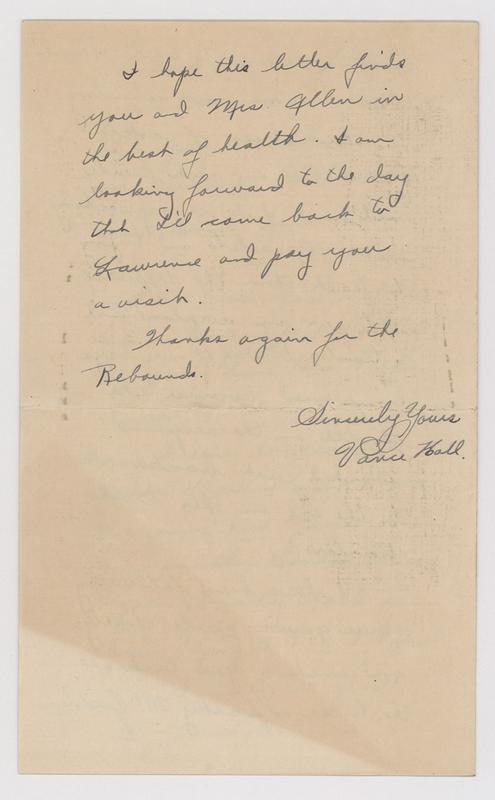 I hope this letter finds
you and Mrs. Allen in
the best of health. I am
looking forward to the day
that I'd come back to
Lawrence and pay you
a visit.
Thanks again for the
Rebounds.
Sincerely Yours
Vance Hall.